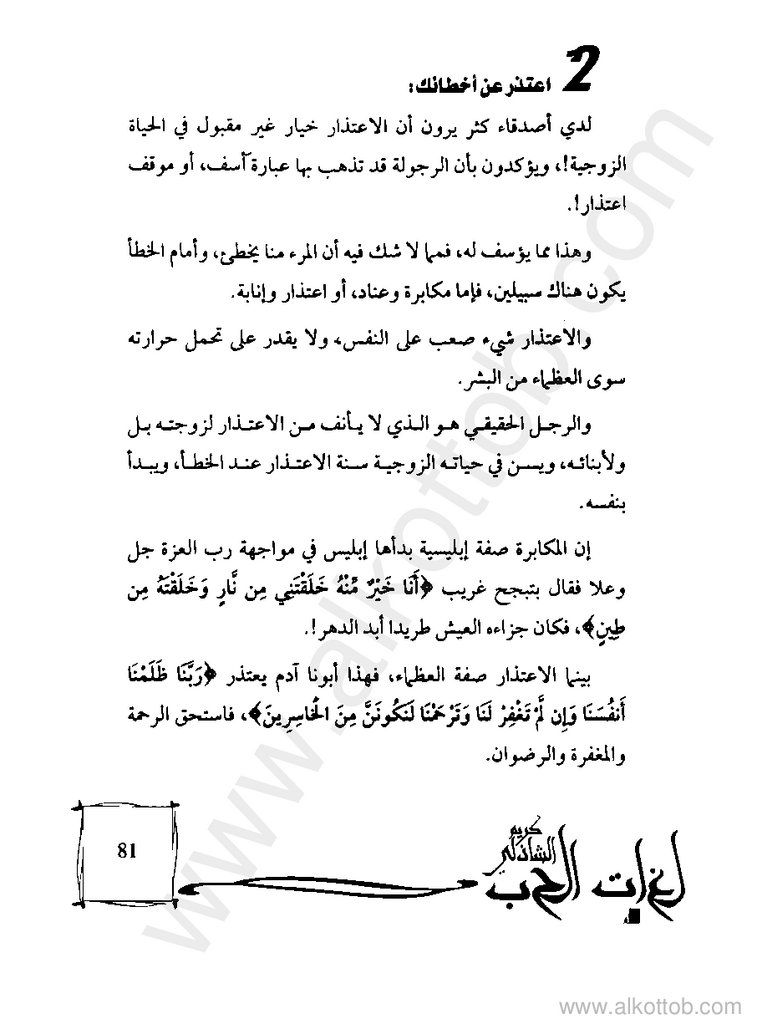 2 اعتذر عن أخطائك:
لدي أصدقاء كثر يرون أن الاعتذار خيار غير مقبول في الحياة
الزوجية!، ويؤكدون بأن الرجولة قد تذهب بها عبارة آسف، أو موقف
اعتذار!.
وهذا مما يؤسف له، فمما لا شك فيه أن المرء منا يخطئ، وأمام الخطأ
يكون هناك سبيلين، فإما مكابرة وعناد، أو اعتذار وإنابة.
والاعتذار شيء صعب على النفس، ولا يقدر على تحمل حرارته
سوى العظماء من البشر.
والرجل الحقيقي هو الذي لا يأنف من الاعتذار لزوجته بل
ولأبنائه، ويسن في حياته الزوجية سنة الاعتذار عند الخطأ، ويبدأ
بنفسه.
إن المكابرة صفة إبليسية بدأها إبليس في مواجهة رب العزة جل
وعلا فقال بتبجح غريب ﴿أَنَا خَيْرٌ مِّنْهُ خَلَقْتَنِي مِن نَّارٍ وَخَلَقْتَهُ مِن
طِينٍ﴾، فكان جزاءه العيش طريدا أبد الدهر!.
بينما الاعتذار صفة العظماء، فهذا أبونا آدم يعتذر ﴿رَبَّنَا ظَلَمْنَا
أَنفُسَنَا وَإِن لَّمْ تَغْفِرْ لَنَا وَتَرْحَمْنَا لَنَكُونَنَّ مِنَ الْخَاسِرِينَ﴾، فاستحق الرحمة
والمغفرة والرضوان.
كريم
الشاذلي
لغات الحب
81
www.alkottob.com
www.alkottob.com